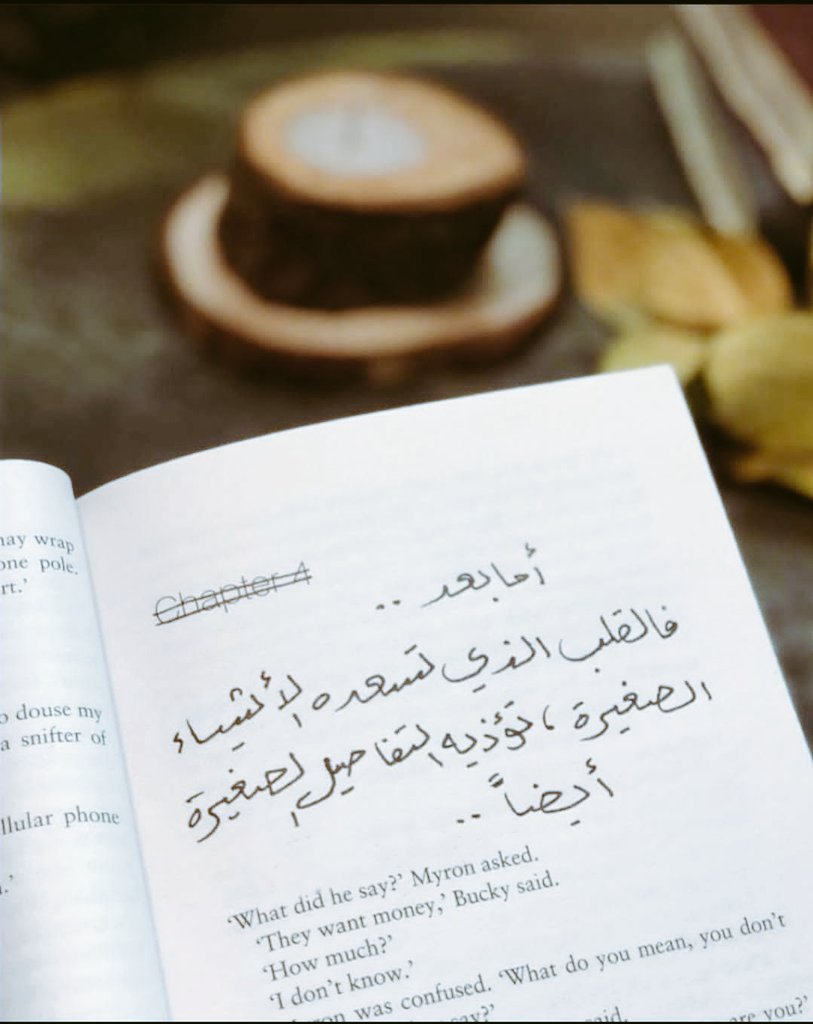 nay wrap
one pole.
rt.'
o douse my
a snifter of
llular phone
.'
Chapter 4
أما بعد ..
فالقلب الذي تسعده الأشياء
الصغيرة ، تؤذيه التفاصيل الصغيرة
أيضاً ..
'What did he say?' Myron asked.
'They want money,' Bucky said.
'How much?'
'I don't know.'
ron was confused. 'What do you mean, you don't
say?' said. are you?'